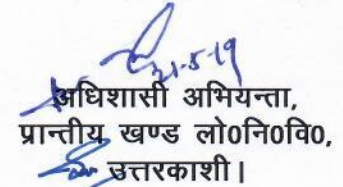 21-5-19
अधिशासी अभियन्ता,
प्रान्तीय खण्ड लो0नि0वि0,
उत्तरकाशी।